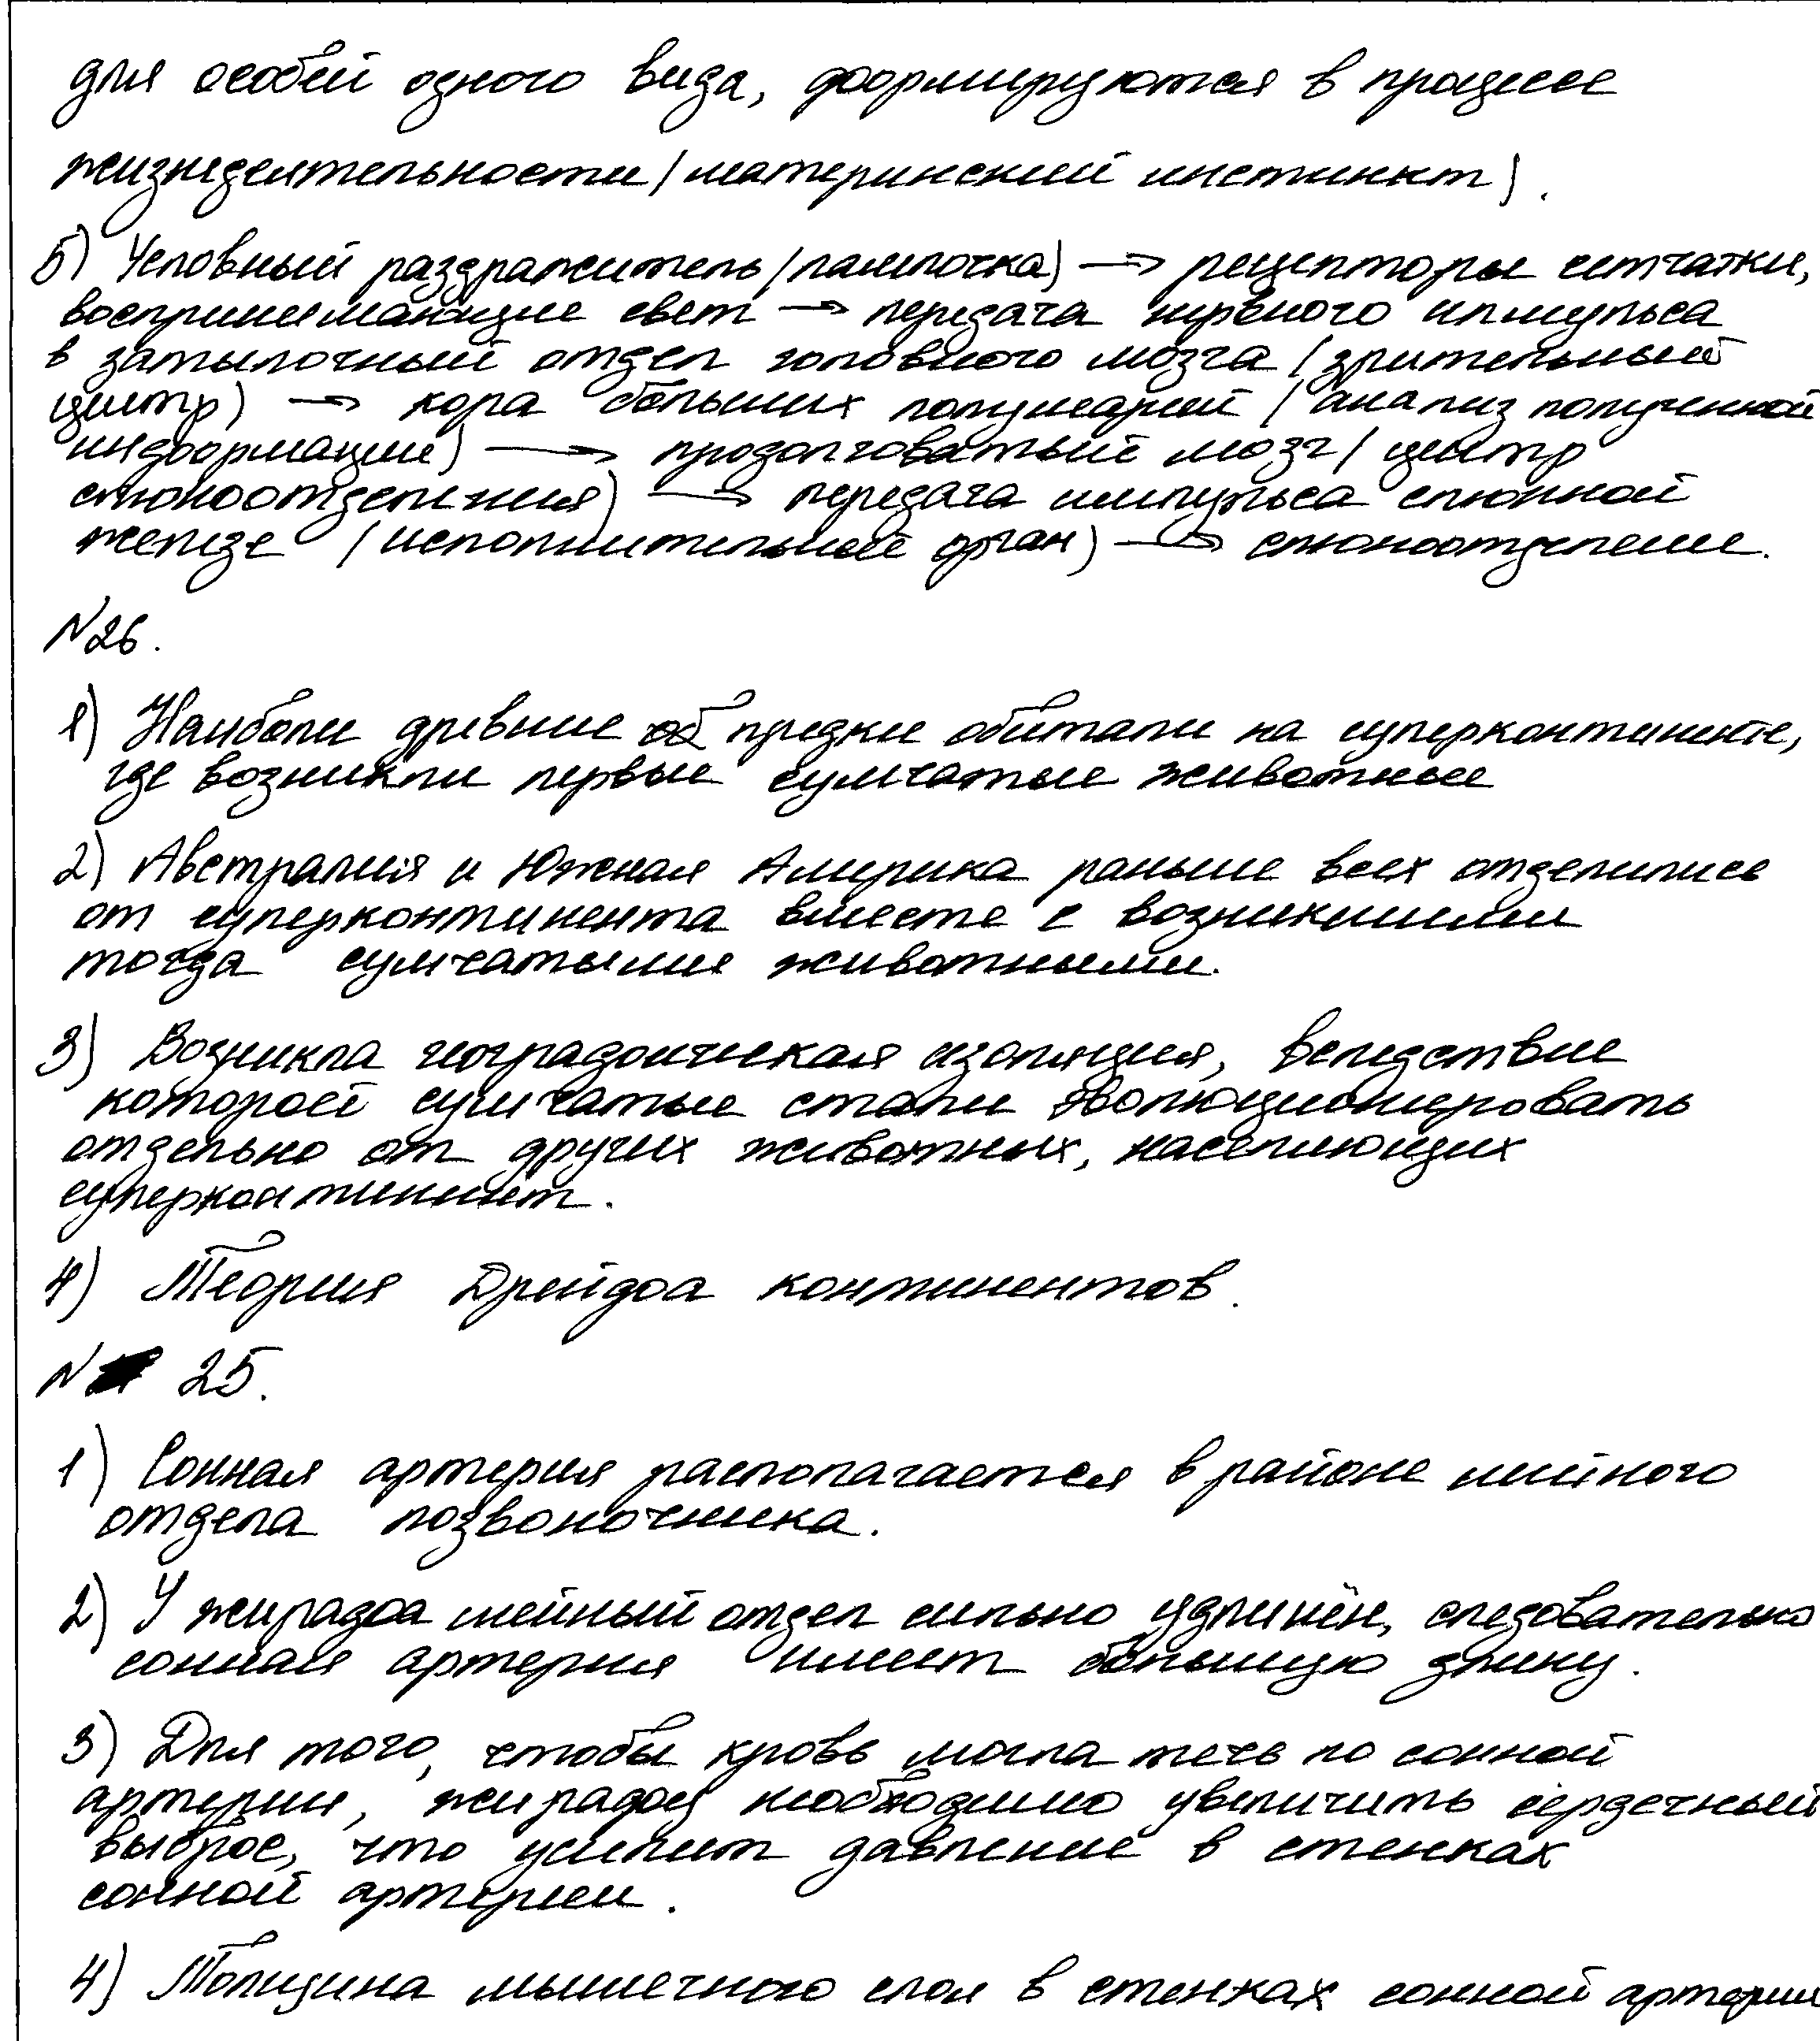 для особей одного вида, формируются в процессе
жизнедеятельности (материнский инстинкт).
5) Условный раздражитель (лампочка) → рецепторы сетчатки,
воспринимающие свет → передача нервного импульса
в затылочный отдел головного мозга (зрительный
центр) → кора больших полушарий (анализ полученной
информации) → продолговатый мозг (центр
слюноотделения) → передача импульса слюнной
железе (исполнительный орган) → слюноотделение.
N26.
1) Наиболее древние предки обитали на суперконтиненте,
где возникли первые сумчатые животные
2) Австралия и Южная Америка раньше всех отделились
от суперконтинента вместе с возникшими
тогда сумчатыми животными.
3) Возникла географическая изоляция, вследствие
которой сумчатые стали эволюционировать
отдельно от других животных, населяющих
суперконтинент.
4) Теория Дрейфа континентов.
N 25.
1) Сонная артерия располагается в районе шейного
отдела позвоночника.
2) У жирафа шейный отдел сильно удлинён, следовательно
сонная артерия имеет большую длину.
3) Для того, чтобы кровь могла течь по сонной
артерии, жирафу необходимо увеличить сердечный
выброс, что усилит давление в стенках
сонной артерии.
4) Толщина мышечного слоя в стенках сонной артерии